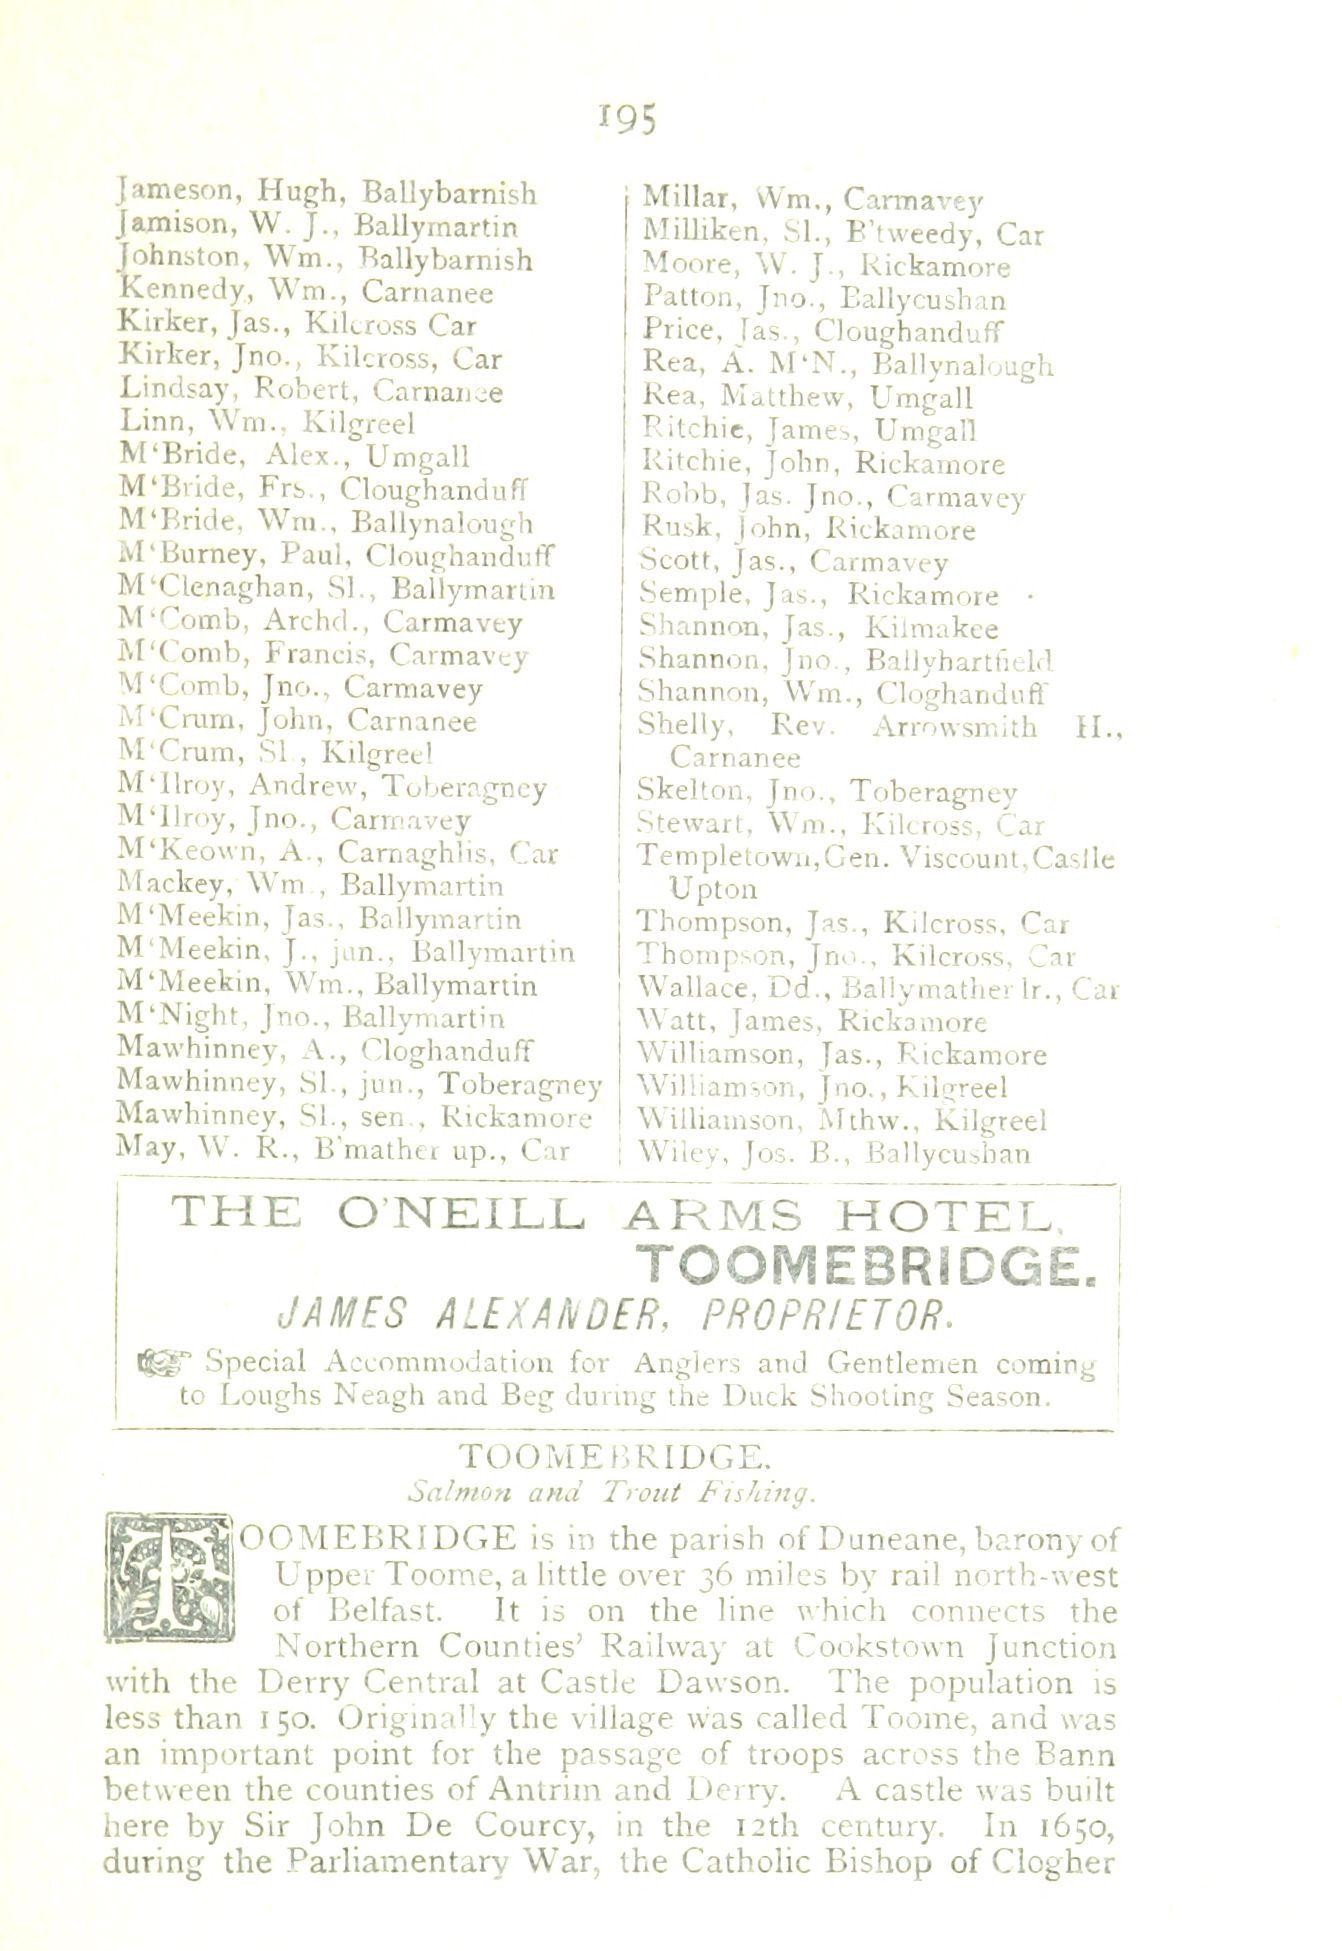 195
Jameson, Hugh, Ballybarnish
Jamison, W. J., Ballymartin
Johnston, Wm., Ballybarnish
Kennedy, Wm., Carnanee
Kirker, Jas., Kilcross Car
Kirker, Jno., Kilcross, Car
Lindsay, Robert, Carnanee
Linn, Wm., Kilgreel
M‘Bride, Alex., Umgall
M‘Bride, Frs., Cloughanduff
M‘Bride, Wm., Ballynalough
M‘Burney, Paul, Cloughanduff
M‘Clenaghan, Sl., Ballymartin
M‘Comb, Archd., Carmavey
M‘Comb, Francis, Carmavey
M‘Comb, Jno., Carmavey
M‘Crum, John, Carnanee
M‘Crum, Sl., Kilgreel
M‘Ilroy, Andrew, Toberagney
M‘Ilroy, Jno., Carmavey
M‘Keown, A., Carnaghlis, Car
Mackey, Wm., Ballymartin
M‘Meekin, Jas., Ballymartin
M‘Meekin, J., jun., Ballymartin
M‘Meekin, Wm., Ballymartin
M‘Night, Jno., Ballymartin
Mawhinney, A., Cloghanduff
Mawhinney, Sl., jun., Toberagney
Mawhinney, Sl., sen., Rickamore
May, W. R., B'mather up., Car
Millar, Wm., Carmavey
Milliken, Sl., B'tweedy, Car
Moore, W. J., Rickamore
Patton, Jno., Ballycushan
Price, Jas., Cloughanduff
Rea, A. M‘N., Ballynalough
Rea, Matthew, Umgall
Ritchie, James, Umgall
Ritchie, John, Rickamore
Robb, Jas. Jno., Carmavey
Rusk, John, Rickamore
Scott, Jas., Carmavey
Semple, Jas., Rickamore
Shannon, Jas., Kilmakee
Shannon, Jno., Ballyhartfield
Shannon, Wm., Cloghanduff
Shelly, Rev. Arrowsmith H.,
Carnanee
Skelton, Jno., Toberagney
Stewart, Wm., Kilcross, Car
Templetown, Gen. Viscount, Castle
Upton
Thompson, Jas., Kilcross, Car
Thompson, Jno., Kilcross, Car
Wallace, Dd., Ballymather lr., Car
Watt, James, Rickamore
Williamson, Jas., Rickamore
Williamson, Jno., Kilgreel
Williamson, Mthw., Kilgreel
Wiley, Jos. B., Ballycushan
THE O'NEILL ARMS HOTEL,
TOOMEBRIDGE.
JAMES ALEXANDER, PROPRIETOR.
☞ Special Accommodation for Anglers and Gentlemen coming
to Loughs Neagh and Beg during the Duck Shooting Season.
TOOMEBRIDGE.
Salmon and Trout Fishing.
TOOMEBRIDGE is in the parish of Duneane, barony of
Upper Toome, a little over 36 miles by rail north-west
of Belfast. It is on the line which connects the
Northern Counties' Railway at Cookstown Junction
with the Derry Central at Castle Dawson. The population is
less than 150. Originally the village was called Toome, and was
an important point for the passage of troops across the Bann
between the counties of Antrim and Derry. A castle was built
here by Sir John De Courcy, in the 12th century. In 1650,
during the Parliamentary War, the Catholic Bishop of Clogher